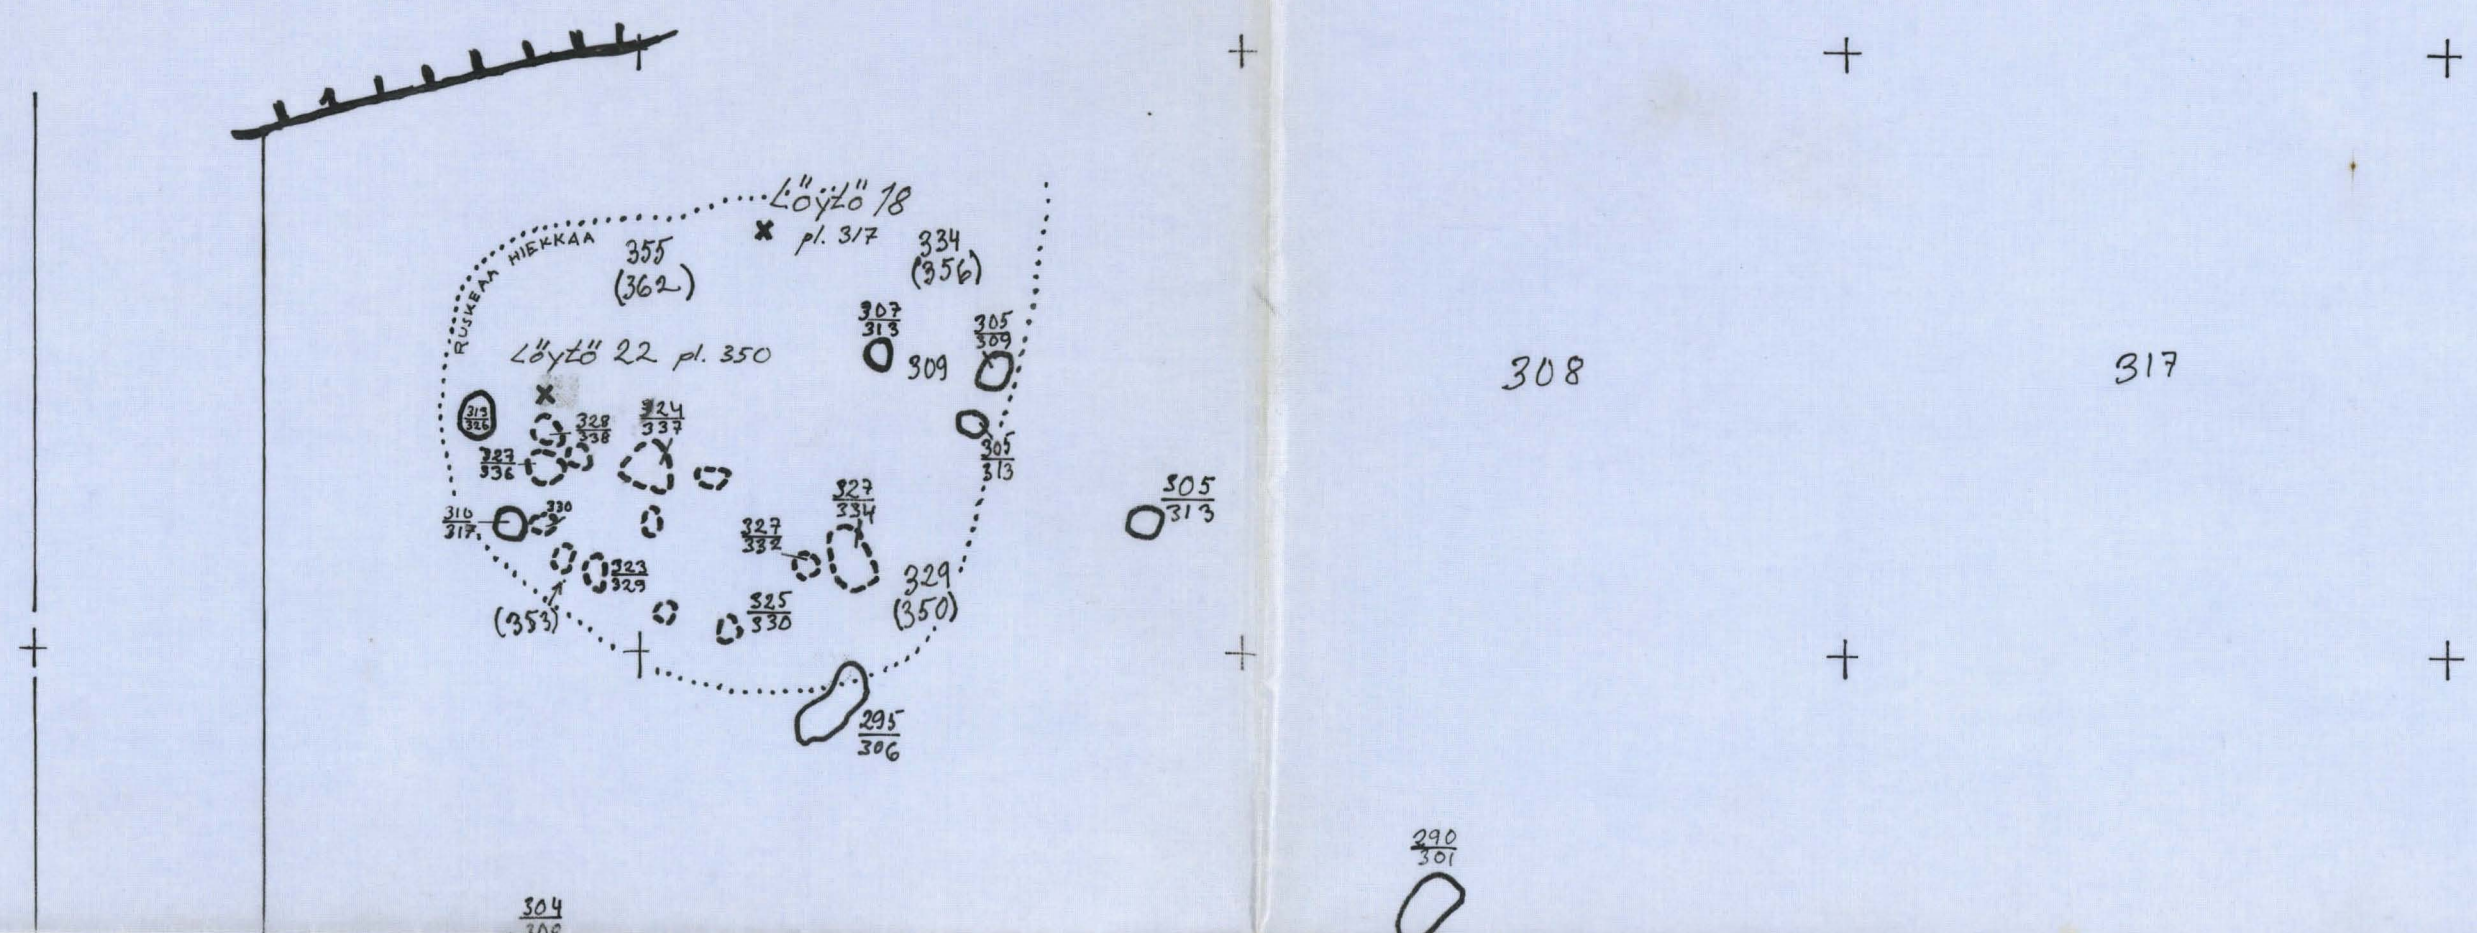 Löytö 18
pl. 317
RUSKEAA HIEKKAA
355
(362)
334
(356)
307
313
305
309
309
Löytö 22 pl. 350
308
317
328
338
324
337
327
336
305
313
305
313
310
317
330
327
334
327
332
323
329
329
(350)
(353)
325
330
295
306
290
301
304